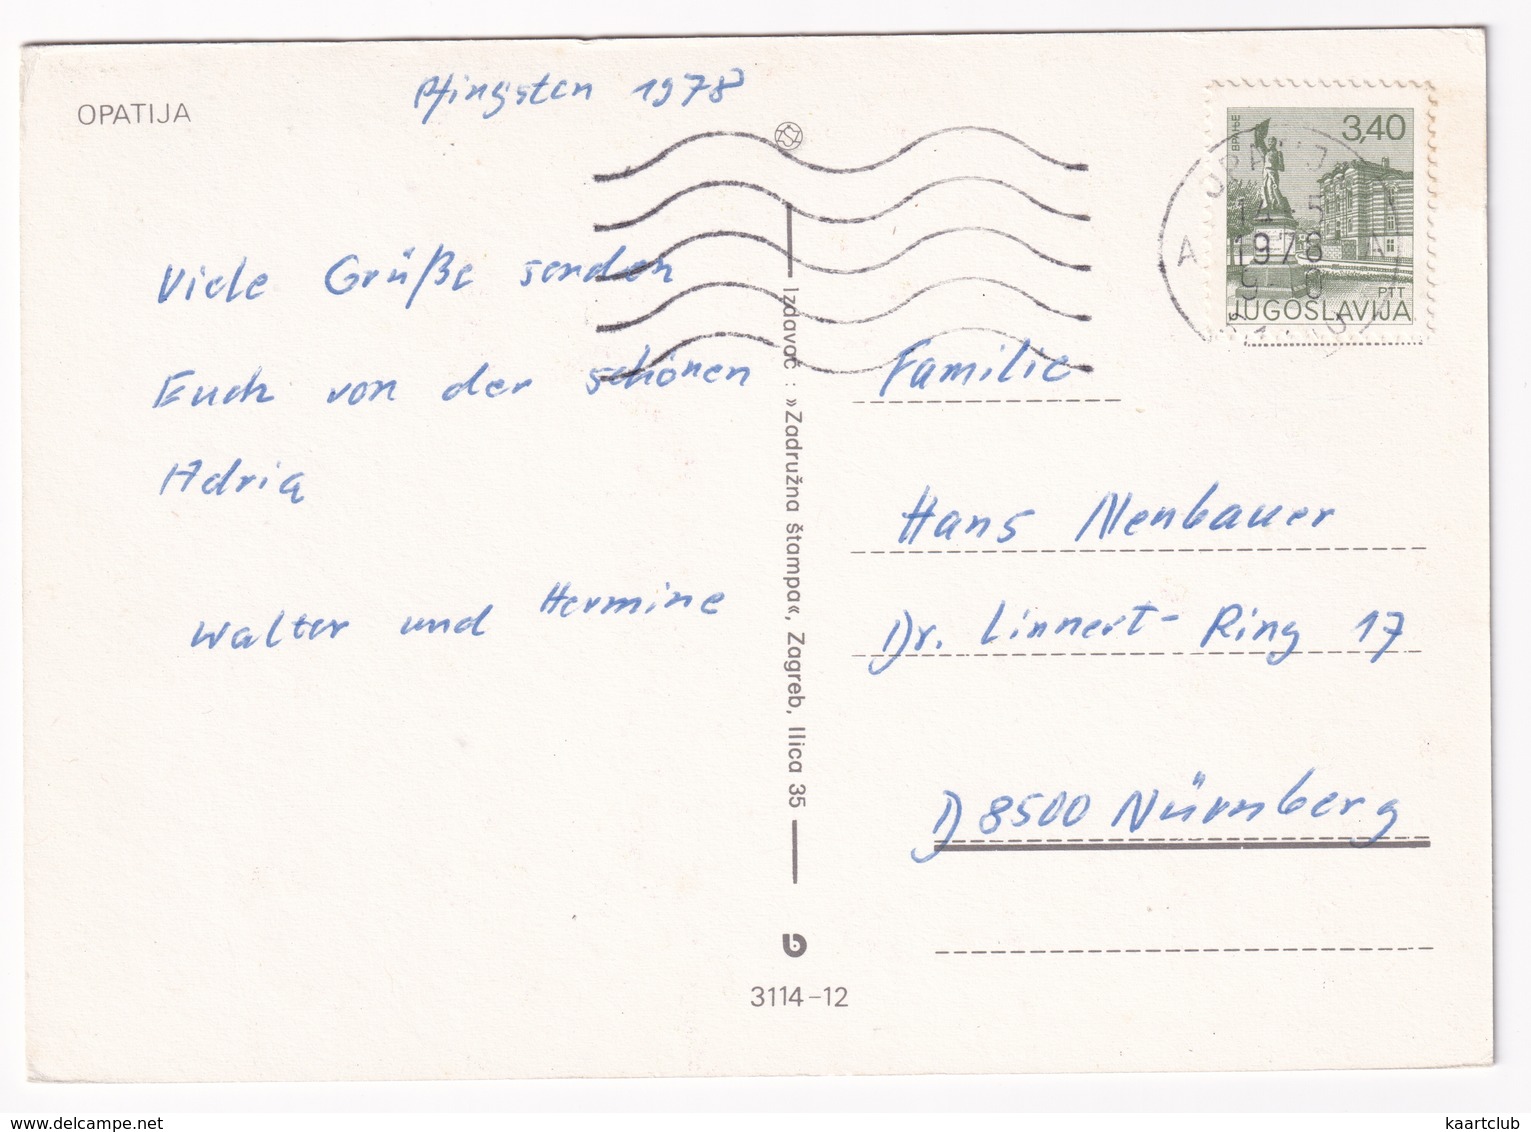 OPATIJA
Pfingsten 1978
Viele Grüße senden
Euch von der schönen
Adria
Walter und Hermine
Izdavač : »Zadružna štampa«, Zagreb, Ilica 35
3114-12
ВРАЊЕ
3,40
PTT
JUGOSLAVIJA
14 5
1978
Familie
Hans Neubauer
Dr. Linnert-Ring 17
D 8500 Nürnberg
www.delcampe.net
kaartclub